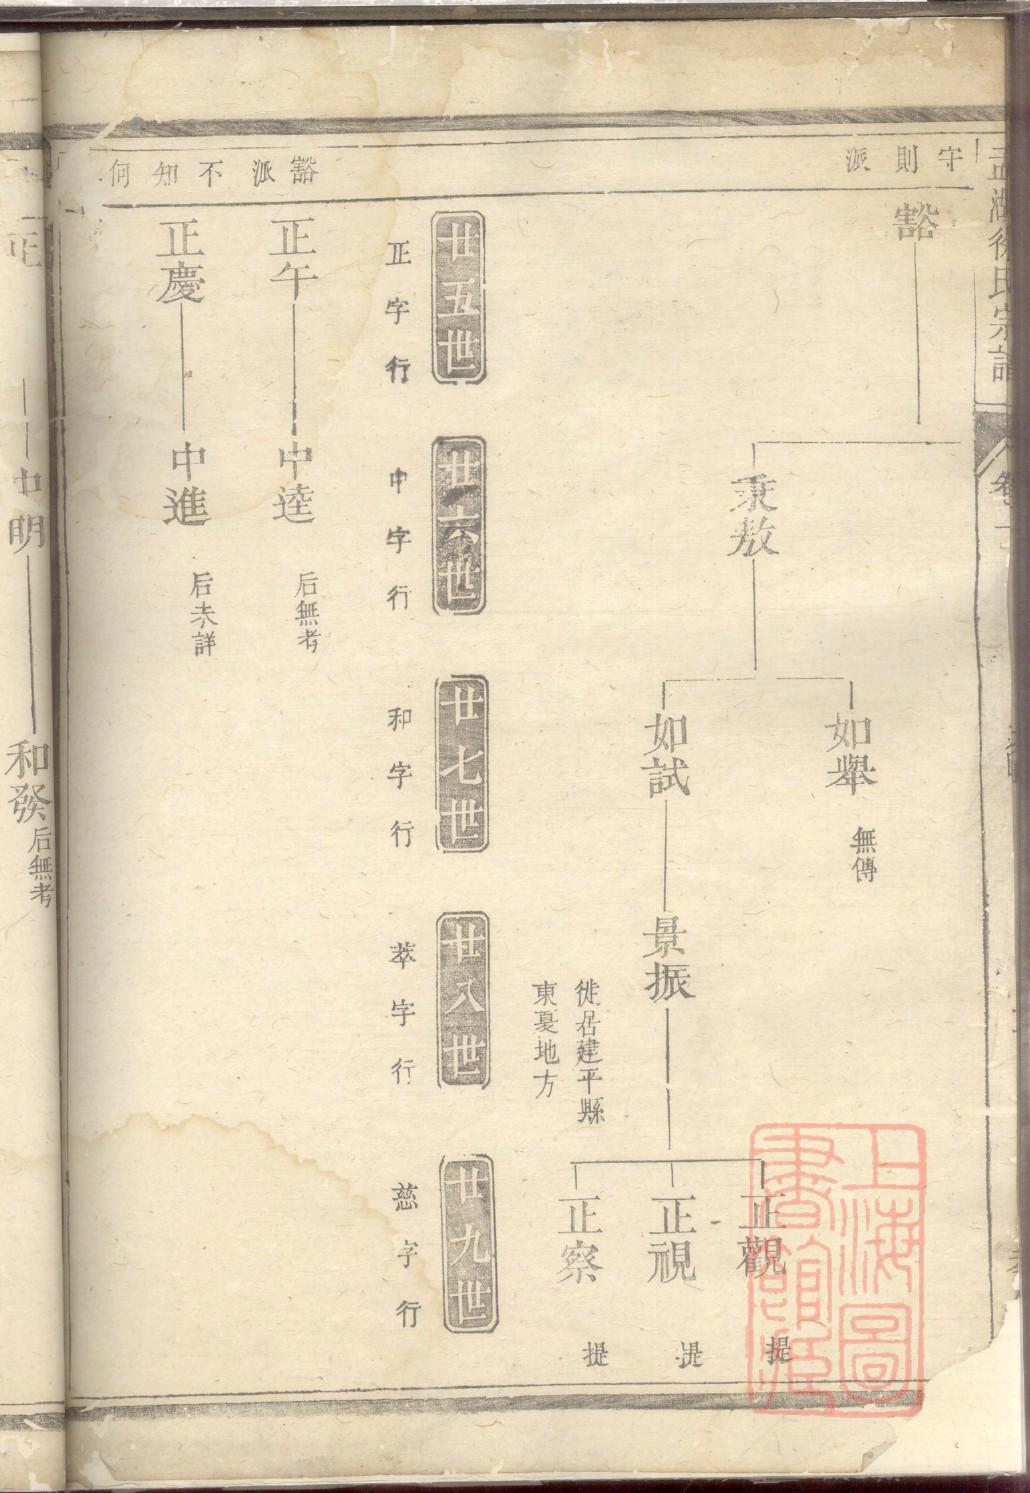 孟湖徐氏宗譜
守則派
豁
秉敖
如舉
無傳
如試
景振
徙居建平縣
東夏地方
正觀
提
正視
提
正察
提
廿五世
廿六世
廿七世
廿八世
廿九世
正字行
中字行
和字行
萃字行
慈字行
豁派不知何
正午
中逵
后無考
正慶
中進
后未詳
正
中明
和發
后無考
上海圖書館藏